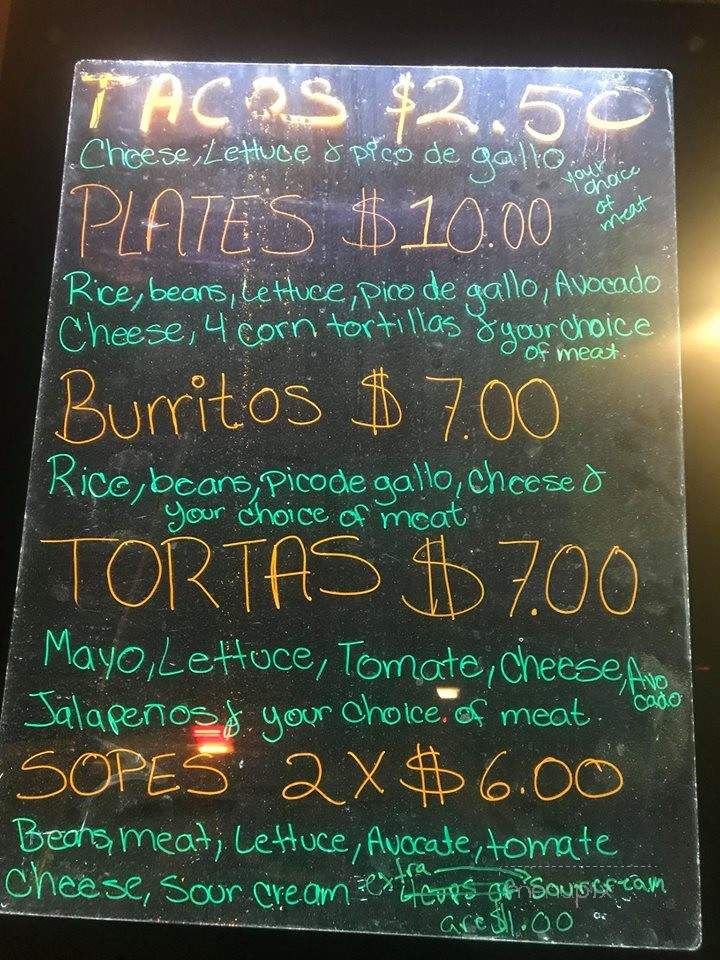 TACOS $2.50
Cheese, Lettuce & pico de gallo
your choice of meat
PLATES $10.00
Rice, beans, Lettuce, pico de gallo, Avocado
Cheese, 4 corn tortillas & your choice
of meat.
Burritos $7.00
Rice, beans, Pico de gallo, cheese &
your choice of meat
TORTAS $7.00
Mayo, Lettuce, Tomate, cheese, Avo
cado
Jalapeños & your choice of meat.
SOPES 2 X $6.00
Beans, meat, Lettuce, Avocate, tomate
cheese, Sour cream extra cups of Sour cream
are $1.00
menupix